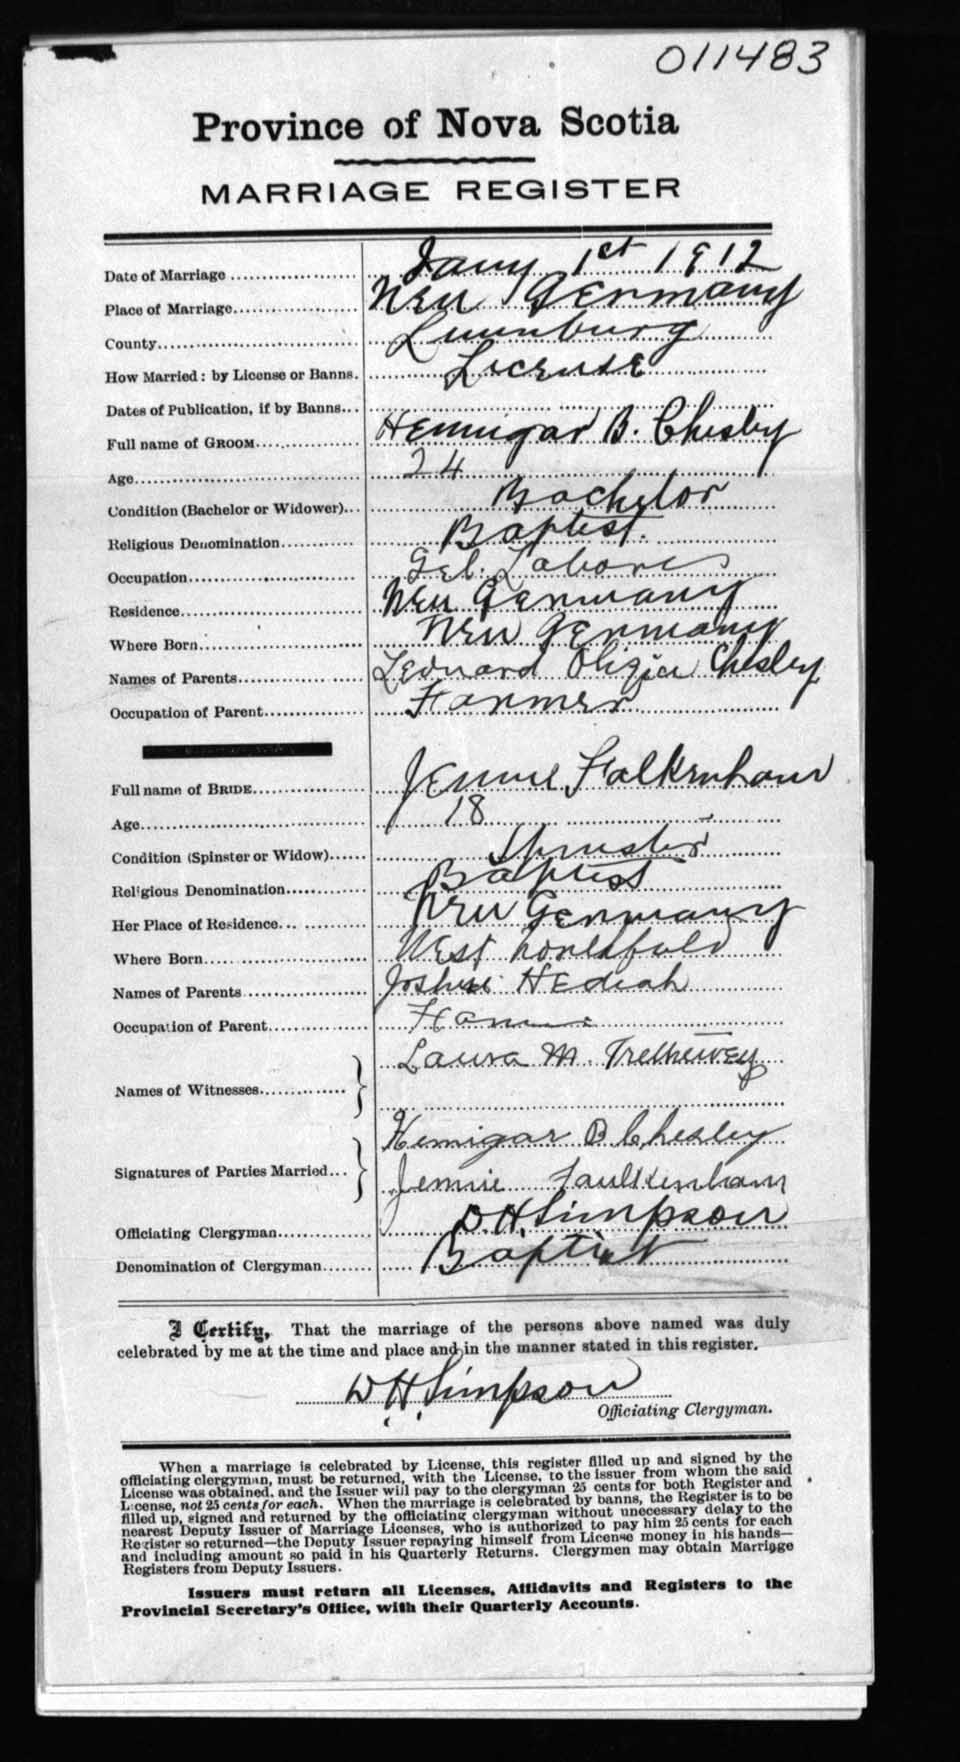 011483
Province of Nova Scotia
MARRIAGE REGISTER
Date of Marriage Jany 1st 1912
Place of Marriage New Germany
County Lunenburg
How Married: by License or Banns. License
Dates of Publication, if by Banns
Full name of GROOM Hennigar B. Chesley
Age 24
Condition (Bachelor or Widower) Bachelor
Religious Denomination Baptist.
Occupation Laborer
Residence New Germany
Where Born New Germany
Names of Parents Leonard Chesley
Occupation of Parent Farmer
Full name of BRIDE Jennie Falkenham
Age 18
Condition (Spinster or Widow) Spinster
Religious Denomination Baptist
Her Place of Residence New Germany
Where Born West
Names of Parents Joshua Hediah
Occupation of Parent Farmer
Names of Witnesses Laura M. Trethewey
Signatures of Parties Married Hemigar B Chesley
Jennie Faulkenham
Officiating Clergyman D. H. Simpson
Denomination of Clergyman Baptist
I Certify, That the marriage of the persons above named was duly
celebrated by me at the time and place and in the manner stated in this register.
D H Simpson
Officiating Clergyman.
When a marriage is celebrated by License, this register filled up and signed by the
officiating clergyman, must be returned, with the License, to the issuer from whom the said
License was obtained, and the Issuer will pay to the clergyman 25 cents for both Register and
License, not 25 cents for each. When the marriage is celebrated by banns, the Register is to be
filled up, signed and returned by the officiating clergyman without unecessary delay to the
nearest Deputy Issuer of Marriage Licenses, who is authorized to pay him 25 cents for each
Register so returned—the Deputy Issuer repaying himself from License money in his hands—
and including amount so paid in his Quarterly Returns. Clergymen may obtain Marriage
Registers from Deputy Issuers.
Issuers must return all Licenses, Affidavits and Registers to the
Provincial Secretary's Office, with their Quarterly Accounts.